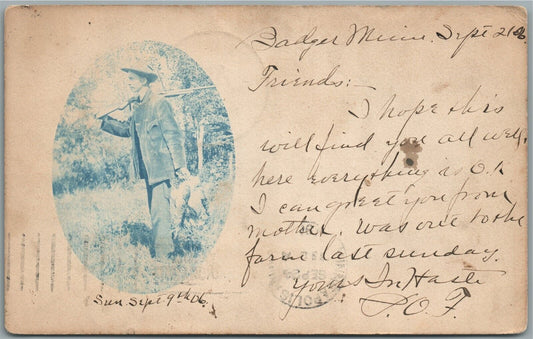 Badger Minn. Sept 21
Friends:-
I hope this
will find you all well,
here everything is O.K
I can greet you from
mother. Was out to the
farm last sunday.
Yours In Haste
P.O.F.
Sun. Sept 9th 06.